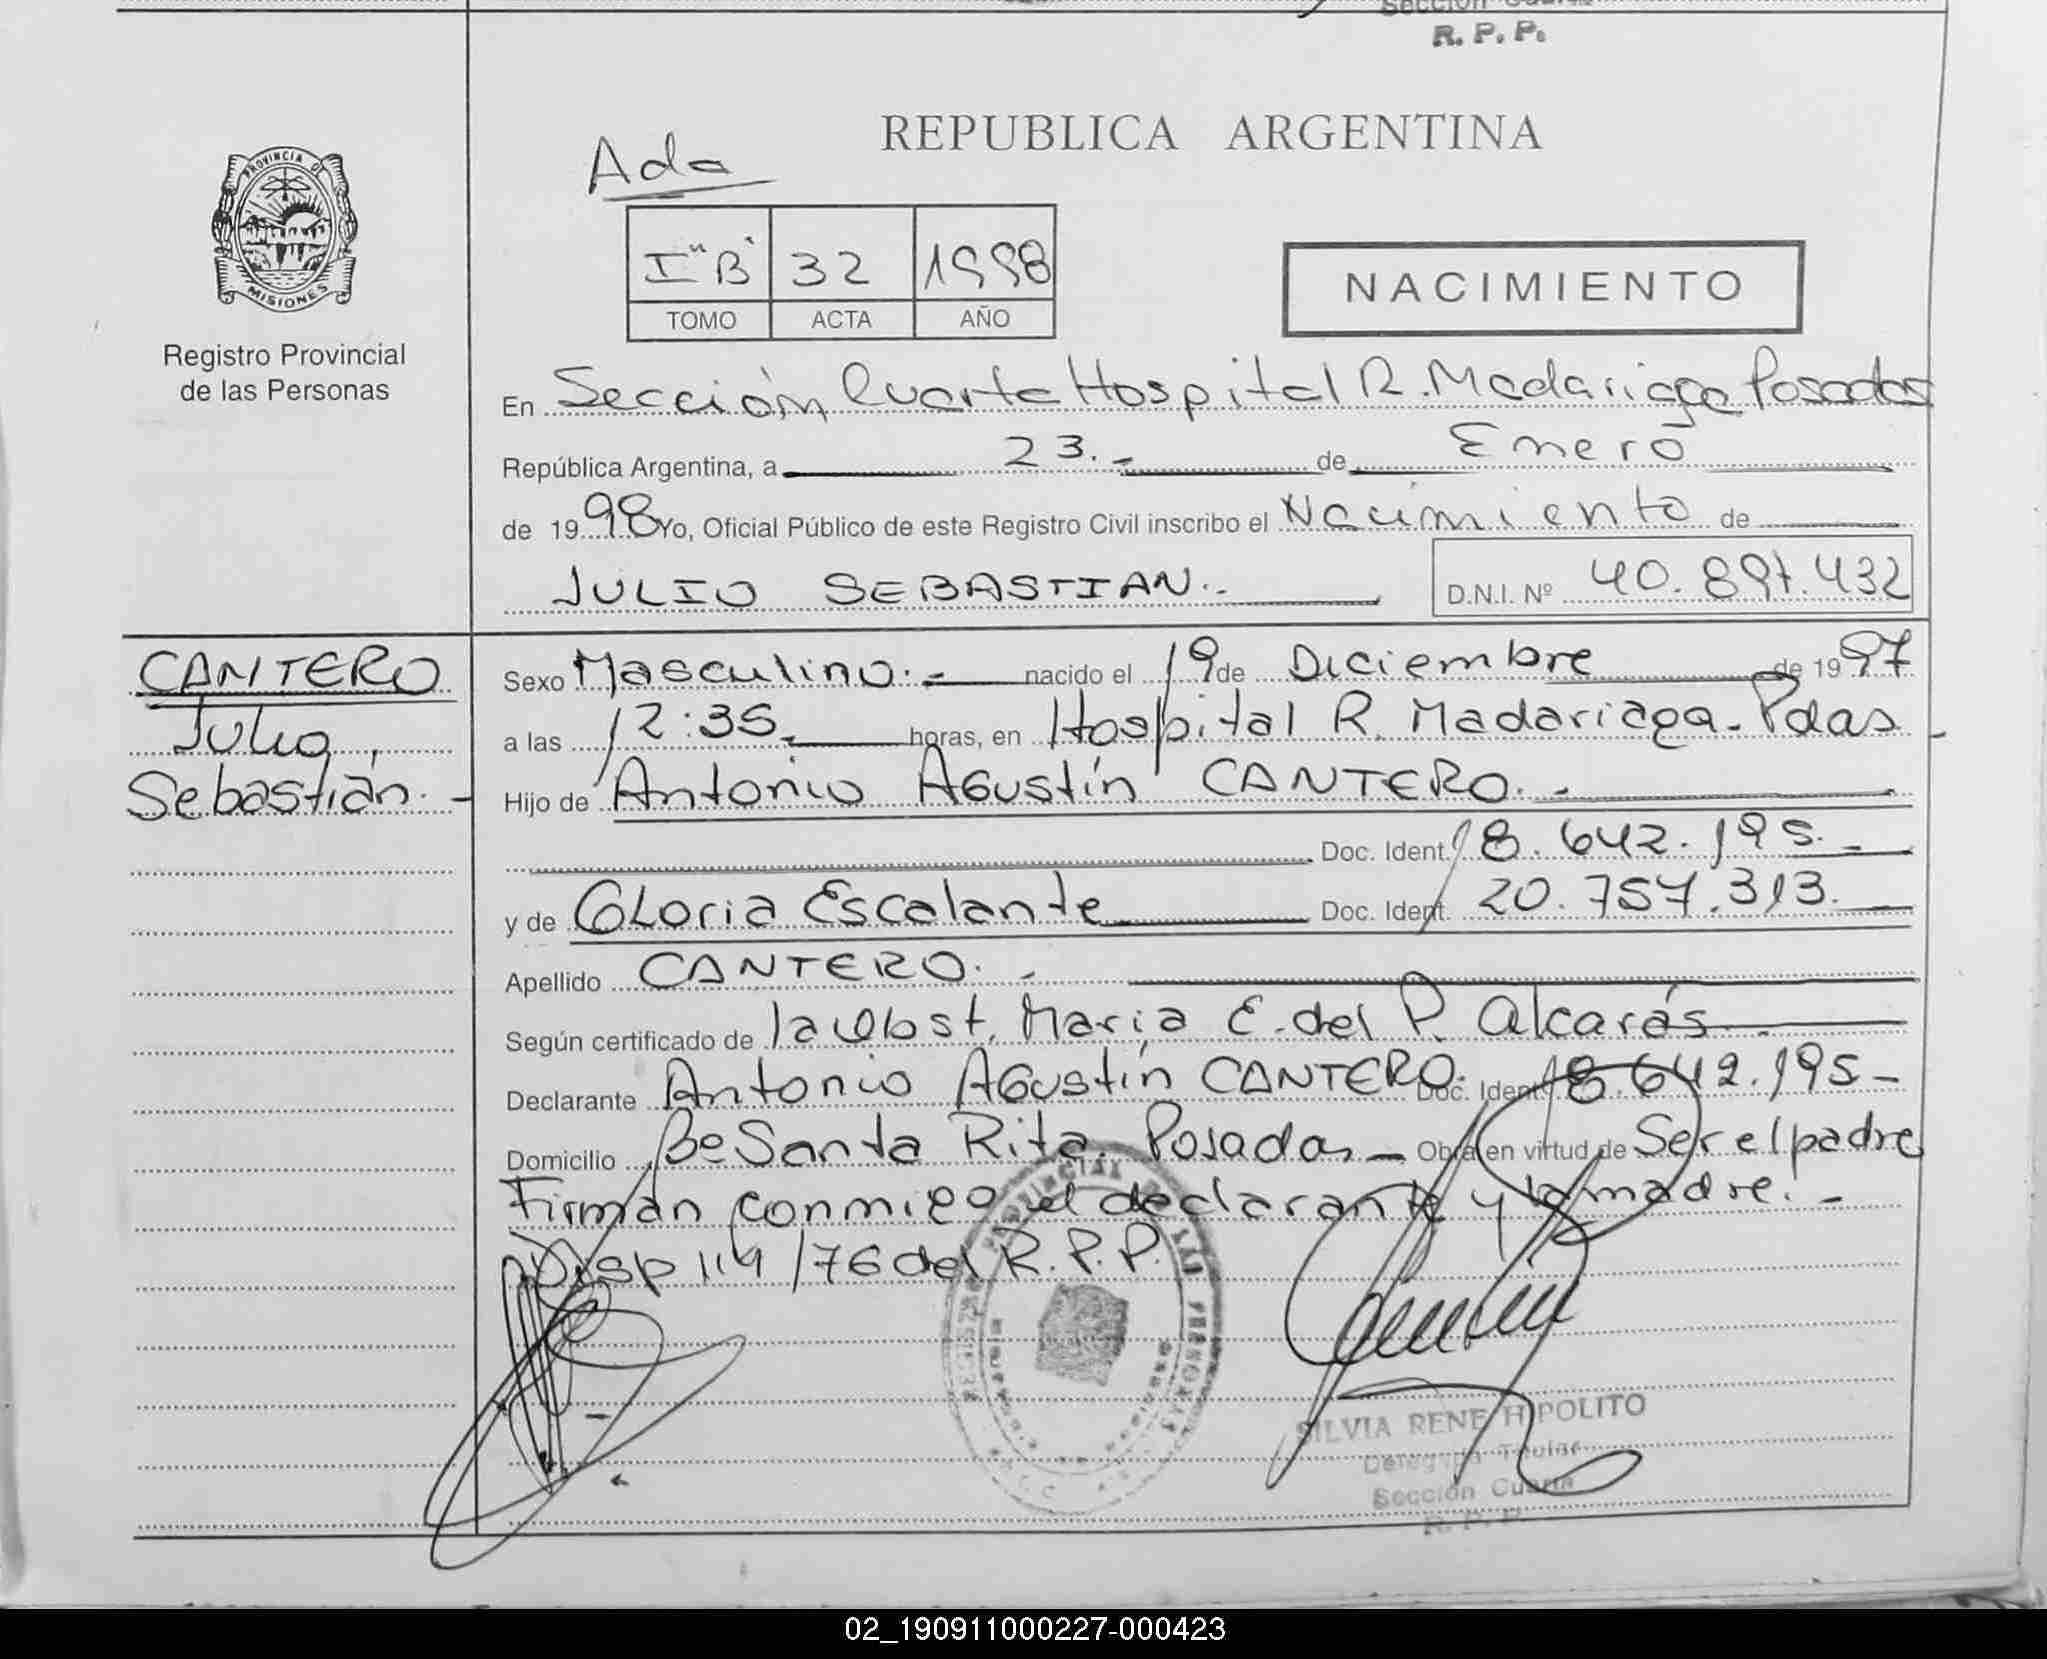 Sección Cuarta
R. P. P.
REPUBLICA ARGENTINA
Ada
PROVINCIA DE
MISIONES
Registro Provincial
de las Personas
I "B" 32 1998
TOMO ACTA AÑO
NACIMIENTO
En Sección Cuarta Hospital R. Madariaga Posadas
República Argentina, a 23.- de Enero
de 1998 Yo, Oficial Público de este Registro Civil inscribo el Nacimiento de
JULIO SEBASTIAN.-
D.N.I. Nº 40.897.432
CANTERO
Julio,
Sebastián.-
Sexo Masculino.- nacido el 19 de Diciembre de 1997
a las 12:35 horas, en Hospital R. Madariaga-Pdas-
Hijo de Antonio Agustín CANTERO.-
Doc. Ident. 18.642.195.-
y de Gloria Escalante Doc. Ident. 20.757.313.
Apellido CANTERO.-
Según certificado de la Obst. María E. del P. Alcarás.-
Declarante Antonio Agustín CANTERO. Doc. Ident. 18.642.195-
Domicilio Bº Santa Rita. Posadas- Obra en virtud de Ser el padre
Firman conmigo el declarante y la madre.-
Disp 114/76 del R.P.P.
SILVIA RENE HIPOLITO
Delegada Titular
Sección Cuarta
R. P. P.
02_190911000227-000423